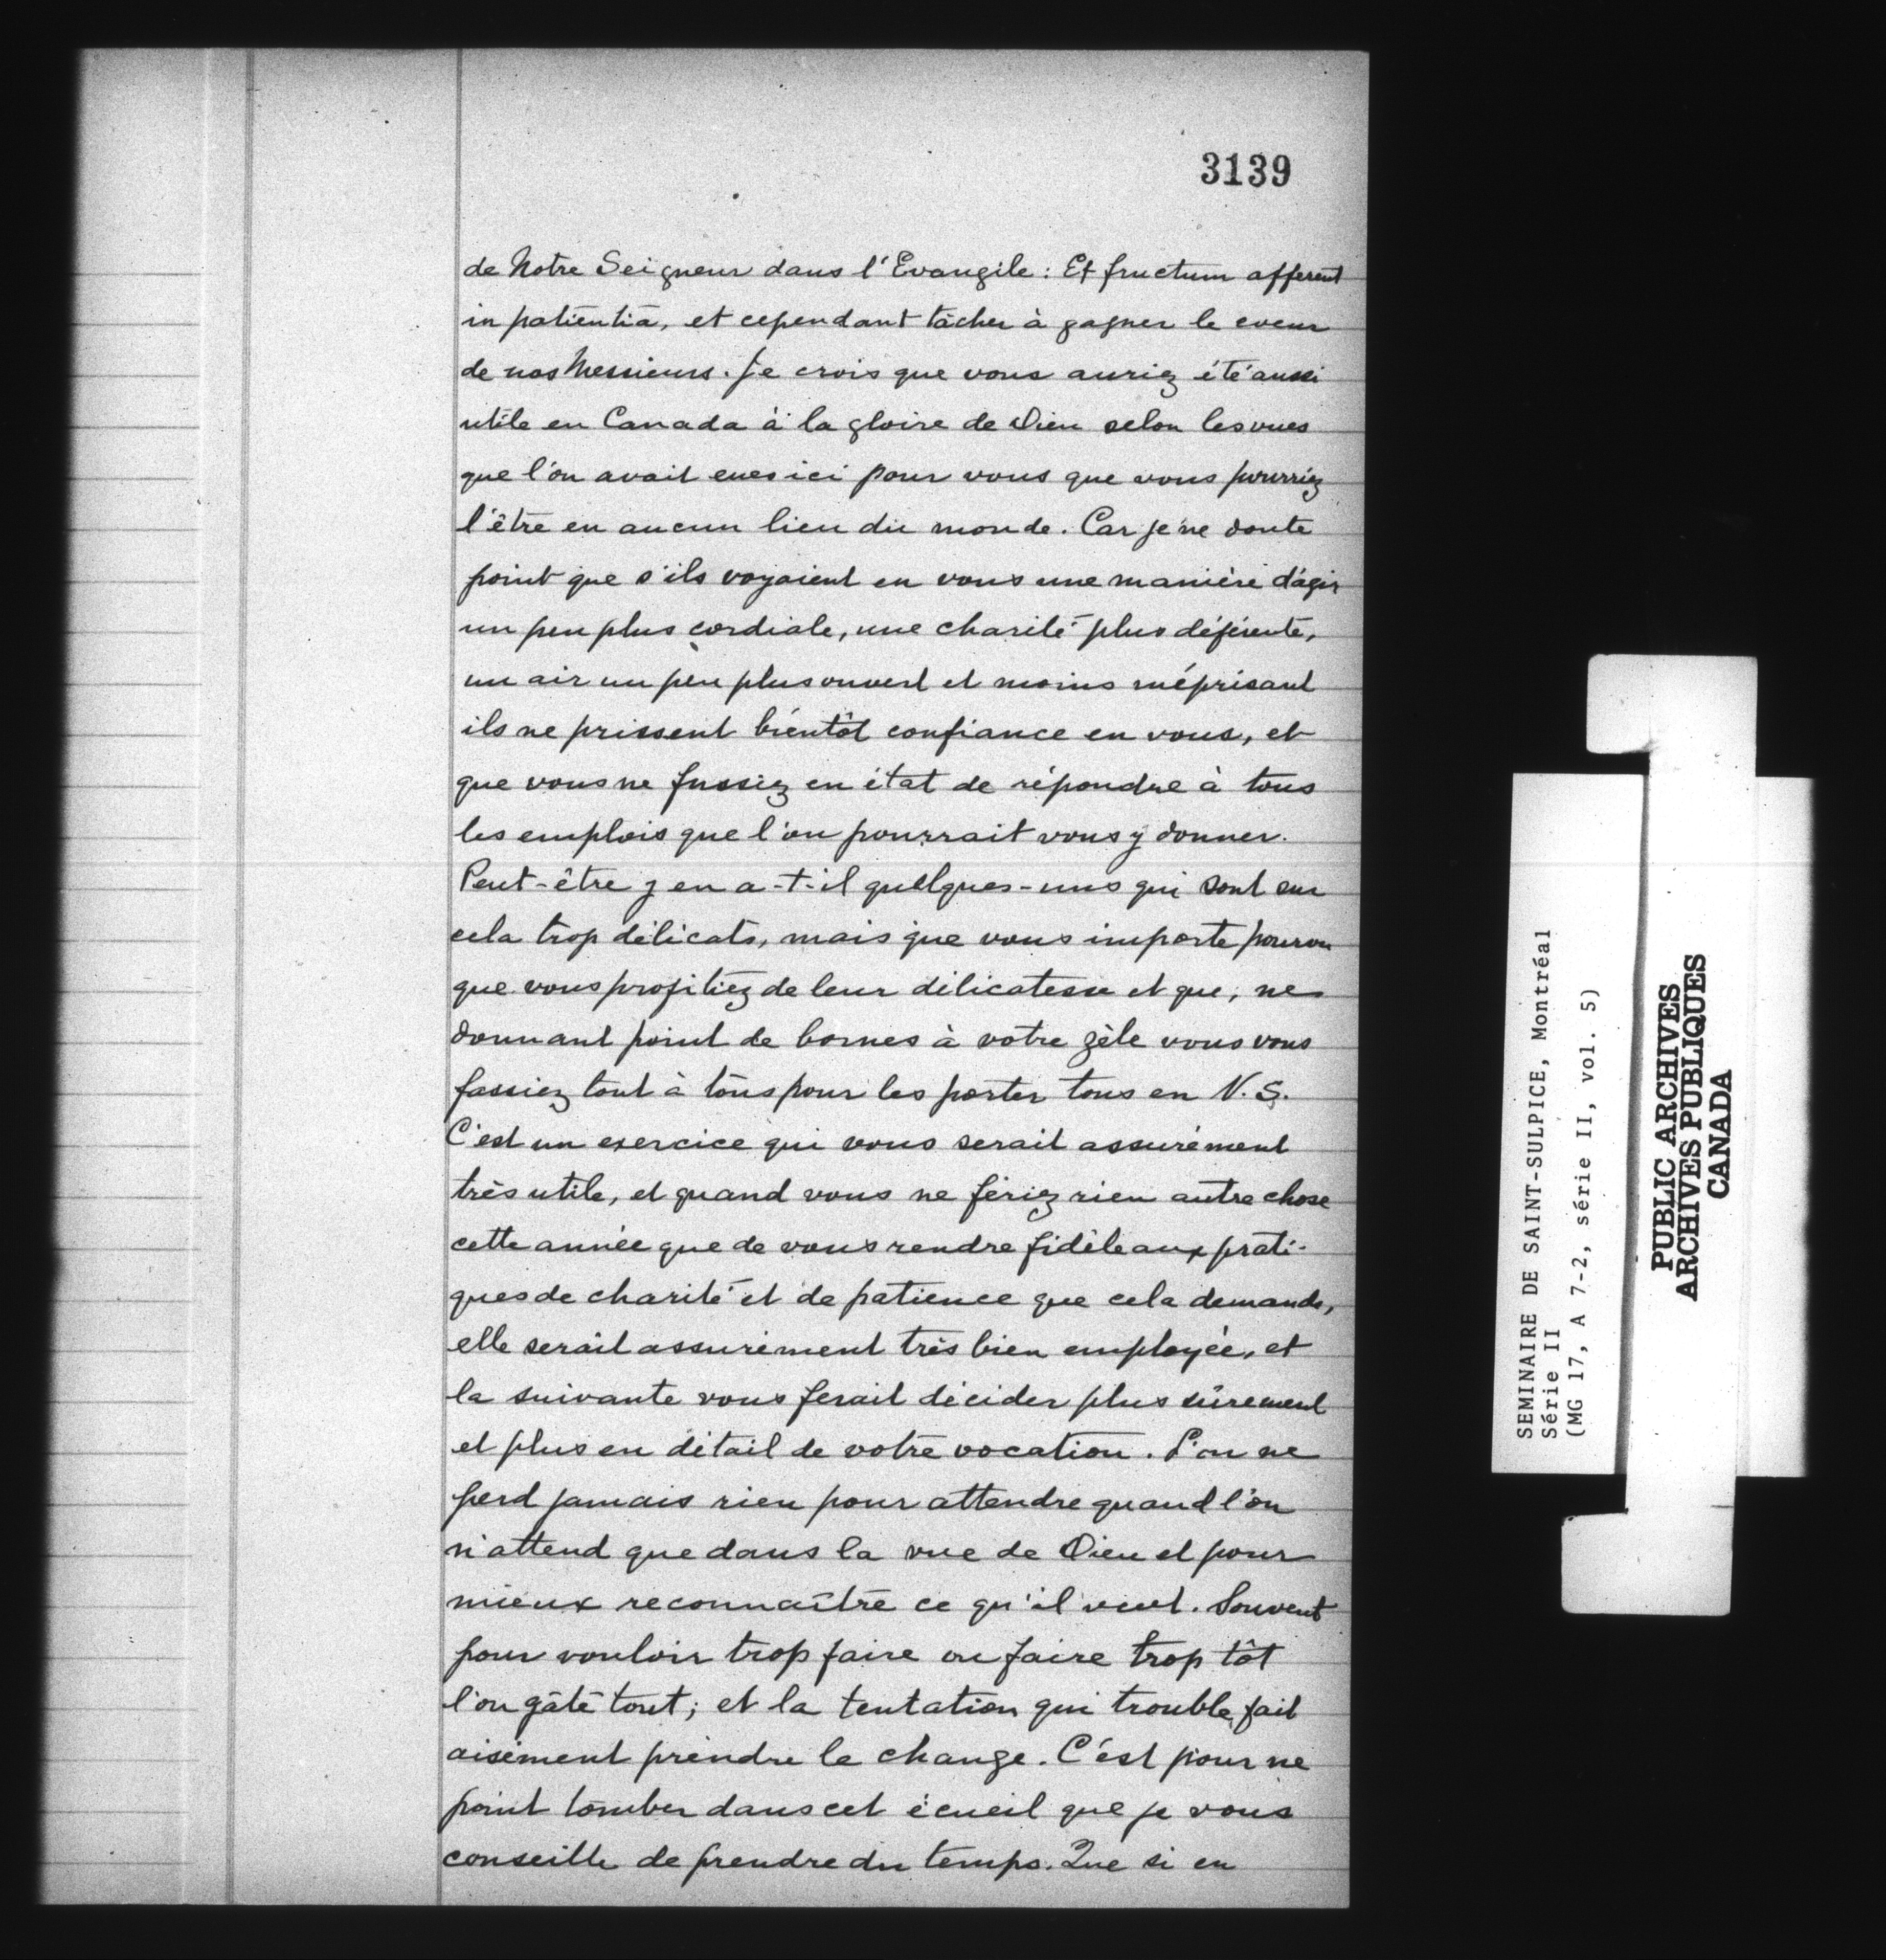 3139
de Notre Seigneur dans l'Evangile : Et fructum afferent
in patientiâ, et cependant tâcher à gagner le coeur
de nos Messieurs. Je crois que vous auriez été aussi
utile en Canada à la gloire de Dieu selon les vues
que l'on avait eues ici pour vous que vous pourriez
l'être en aucun lieu du monde. Car je ne doute
point que s'ils voyaient en vous une manière d'agir
un peu plus cordiale, une charité plus déférente,
un air un peu plus ouvert et moins méprisant
ils ne prissent bientôt confiance en vous, et
que vous ne fussiez en état de répondre à tous
les emplois que l'on pourrait vous y donner.
Peut-être y en a-t-il quelques-uns qui sont sur
cela trop délicats, mais que vous importe pourvu
que vous profitiez de leur délicatesse et que, ne
donnant point de bornes à votre zèle vous vous
fassiez tout à tous pour les porter tous en N.S.
C'est un exercice qui vous serait assurément
très utile, et quand vous ne feriez rien autre chose
cette année que de vous rendre fidèle aux prati-
ques de charité et de patience que cela demande,
elle serait assurément très bien employée, et
la suivante vous ferait décider plus sûrement
et plus en détail de votre vocation. L'on ne
perd jamais rien pour attendre quand l'on
n'attend que dans la vue de Dieu et pour
mieux reconnaître ce qu'il veut. Souvent
pour vouloir trop faire ou faire trop tôt
l'on gâte tout ; et la tentation qui trouble fait
aisément prendre le change. C'est pour ne
point tomber dans cet écueil que je vous
conseille de prendre du temps. Que si en
SEMINAIRE DE SAINT-SULPICE, Montréal
Série II
(MG 17, A 7-2, série II, vol. 5)
PUBLIC ARCHIVES
ARCHIVES PUBLIQUES
CANADA